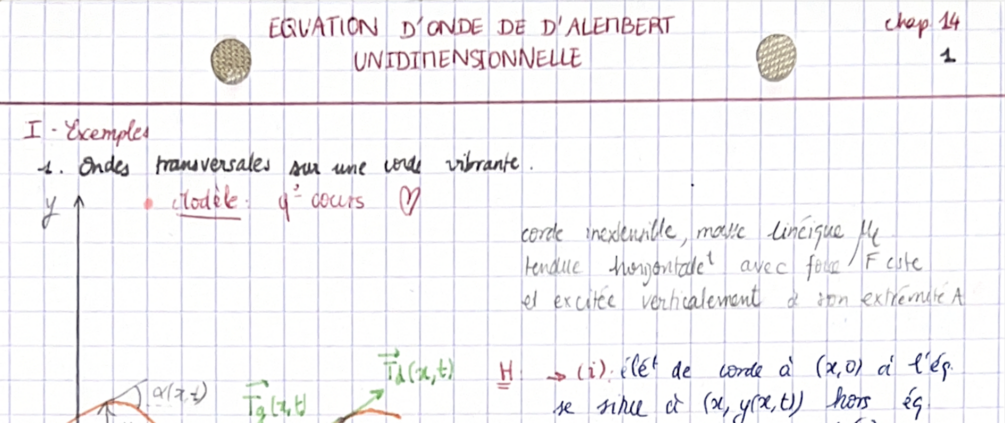 EQUATION D'ONDE DE D'ALEMBERT
UNIDIMENSIONNELLE
chap 14
1
I - Exemples
1. Ondes transversales sur une corde vibrante.
y
• Modèle: q° cours ♡
corde inextensible, masse linéique μl
tendue horizontale^t avec force F cste
et excitée verticalement à son extrémité A
α(x,t)
Tg(x,t)
Td(x,t)
H: → (i): élé^t de corde à (x,0) à l'éq.
se situe à (x, y(x,t)) hors éq.